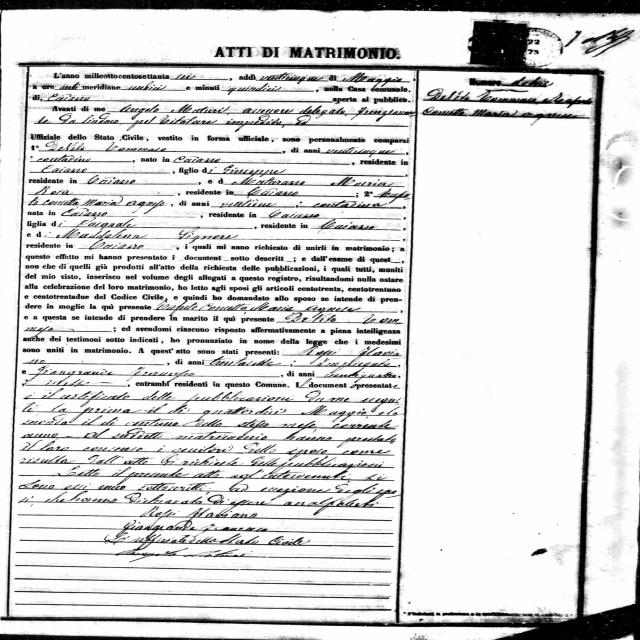 ATTI DI MATRIMONIO.
L'anno milleottocentosettanta sei, addì venticinque di Maggio
a ore anti meridiane undici e minuti quindici, nella Casa comunale
di Caiazzo aperta al pubblico.
Avanti di me Angelo assessore delegato, funzionan
te da Sindaco pel titolare impedito, ed
Uffiziale dello Stato Civile, vestito in forma uffiziale, sono personalmente comparsi
1° DeVito Tommaso, di anni venticinque
contadino, nato in Caiazzo, residente in
Caiazzo, figlio di Giuseppe
residente in Caiazzo, e di Maturazzo Maria
Rosa, residente in Caiazzo; 2°
Concetta Maria Agnese, di anni ventuno; contadina
nata in Caiazzo, residente in Caiazzo,
figlia di Pasquale, residente in Caiazzo
e di Maddalena Signore
residente in Caiazzo, i quali mi anno richiesto di unirli in matrimonio; a
questo effetto mi hanno presentati i document sotto descritt; e dall'esame di quest,
non che di quelli già prodotti all'atto della richiesta delle pubblicazioni, i quali tutti, muniti
del mio visto, inserisco nel volume degli allegati a questo registro, risultandomi nulla ostare
alla celebrazione del loro matrimonio, ho letto agli sposi gli articoli centotrenta, centotrentuno
e centotrentadue del Codice Civile, e quindi ho domandato allo sposo se intende di pren-
dere in moglie la quì presente Concetta Maria Agnese,
e a questa se intende di prendere in marito il quì presente DeVito Tom
maso; ed avendomi ciascuno risposto affermativamente a piena intelligenza
anche dei testimoni sotto indicati, ho pronunziato in nome della legge che i medesimi
sono uniti in matrimonio. A quest'atto sono stati presenti: Rossi Flavia
no, di anni trentasette, impiegato
e Giangrande Francesco, di anni
, entrambi residenti in questo Comune. I document presentat
è il certificato delle pubblicazioni da me segui
te la prima il dì quattordici Maggio, e la
seconda il dì ventuno dello stesso mese, corrente
anno. Al suddetto matrimonio hanno prestato
il loro consenso i genitori dello sposo come
risulta dall'atto di richiesta delle pubblicazioni
Letto il presente atto agl'intervenuti, si
sono essi meco sottoscritti, ad eccezione degli spo
si, che hanno dichiarato di essere analfabeti
Rossi Flaviano
Giangrande Francesco
L'uffiziale dello Stato Civile
Numero dodici
DeVito Tommaso e
Concetta Maria Agnese